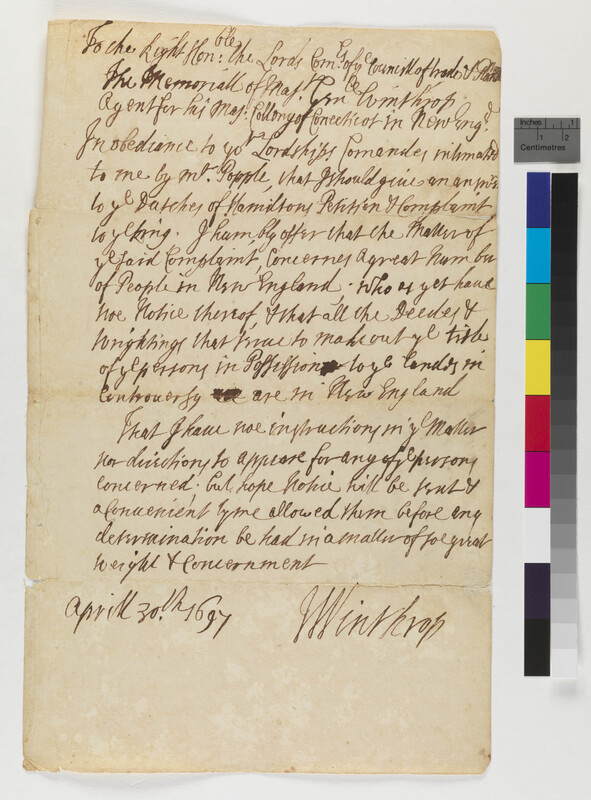 To the Right Hon:ble the Lords Com:rs of ye Councill of trade &
The Memoriall of Maj:r Winthrop
Agent for his Maj: Collony of Conecticot in New Eng:d
In obediance to yor Lordships Comandes intimated
to me by mr. Popple, that I should give an answr
to ye Dutches of Hamiltons Petition & Complaint
to ye King. I humbly offer that the Matter of
ye said Complaint, Concernes a great Number
of People in New England, who as yet have
noe Notice thereof, & that all the Deedes &
wrightings that serve to make out ye title
of ye persons in Possession to ye Landes in
Controversy are in New England
That I have noe instructions in ye Matter
nor directions to appeare for any of ye persons
concerned; but hope Notice will be sent &
a Convenient tyme allowed them before any
determination be had in a matter of soe great
weight & Concernment
Aprill 30.th 1697 JWinthrop
Inches 1 2
Centimetres